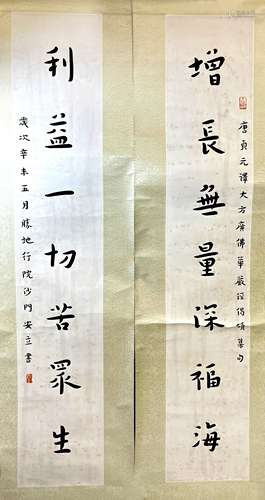 增長無量深福海
唐貞元譯大方廣佛華嚴經偈頌集句
利益一切苦眾生
歲次辛未五月勝地行院沙門安立書